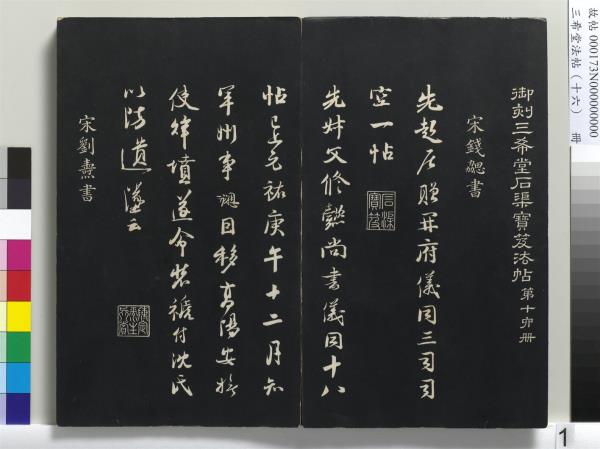 故帖 000173N000000000
三希堂法帖（十六） 冊
御刻三希堂石渠寶笈法帖 第十六册
宋錢勰書
先起居贈開府儀同三司司
空一帖
石渠寶笈
先叔父修懿尚書儀同十八
帖已上元祐庚午十二月知
軍州事勰因移高陽安撫
使拜墳遂令裝褫付沈氏
以防遺墜云
宋劉燾書
1